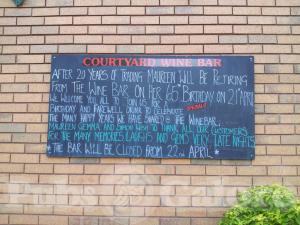 COURTYARD WINE BAR
AFTER 20 YEARS OF TRADING MAUREEN WILL BE RETIRING
FROM THE WINE BAR ON HER 65TH BIRTHDAY ON 21ST APRIL
WE WELCOME YOU ALL TO JOIN US FOR A
BIRTHDAY AND FAREWELL DRINK TO CELEBRATE
THE MANY HAPPY YEARS WE HAVE SHARED @ THE WINEBAR.
MAUREEN GEMMA AND SIMON WISH TO THANK ALL OUR CUSTOMERS
FOR THE MANY MEMORIES LAUGHS AND VERY LATE NIGHTS
* THE BAR WILL BE CLOSED FROM 22ND APRIL *